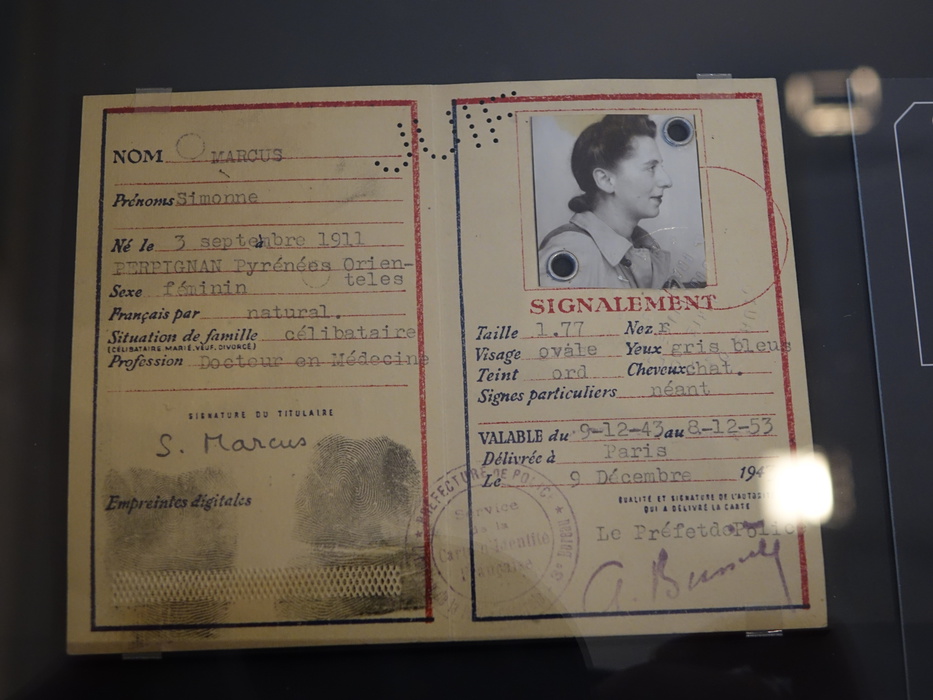 JUIF
NOM MARCUS
Prénoms Simonne
Né le 3 septembre 1911
à PERPIGNAN Pyrénées Orien-
teles
Sexe féminin
Français par natural.
Situation de famille célibataire
(CÉLIBATAIRE, MARIÉ, VEUF, DIVORCÉ)
Profession Docteur en Médecine
SIGNATURE DU TITULAIRE
S. Marcus
Empreintes digitales
SIGNALEMENT
Taille 1.77 Nez r
Visage ovale Yeux gris bleus
Teint ord Cheveux chat.
Signes particuliers néant
VALABLE du 9-12-43 au 8-12-53
Délivrée à Paris
Le 9 Décembre 194
QUALITÉ ET SIGNATURE DE L'AUTORITÉ
QUI A DÉLIVRÉ LA CARTE
Le Préfet de Police
PREFECTURE DE POLICE
Service
de la
Carte d'Identité
Française